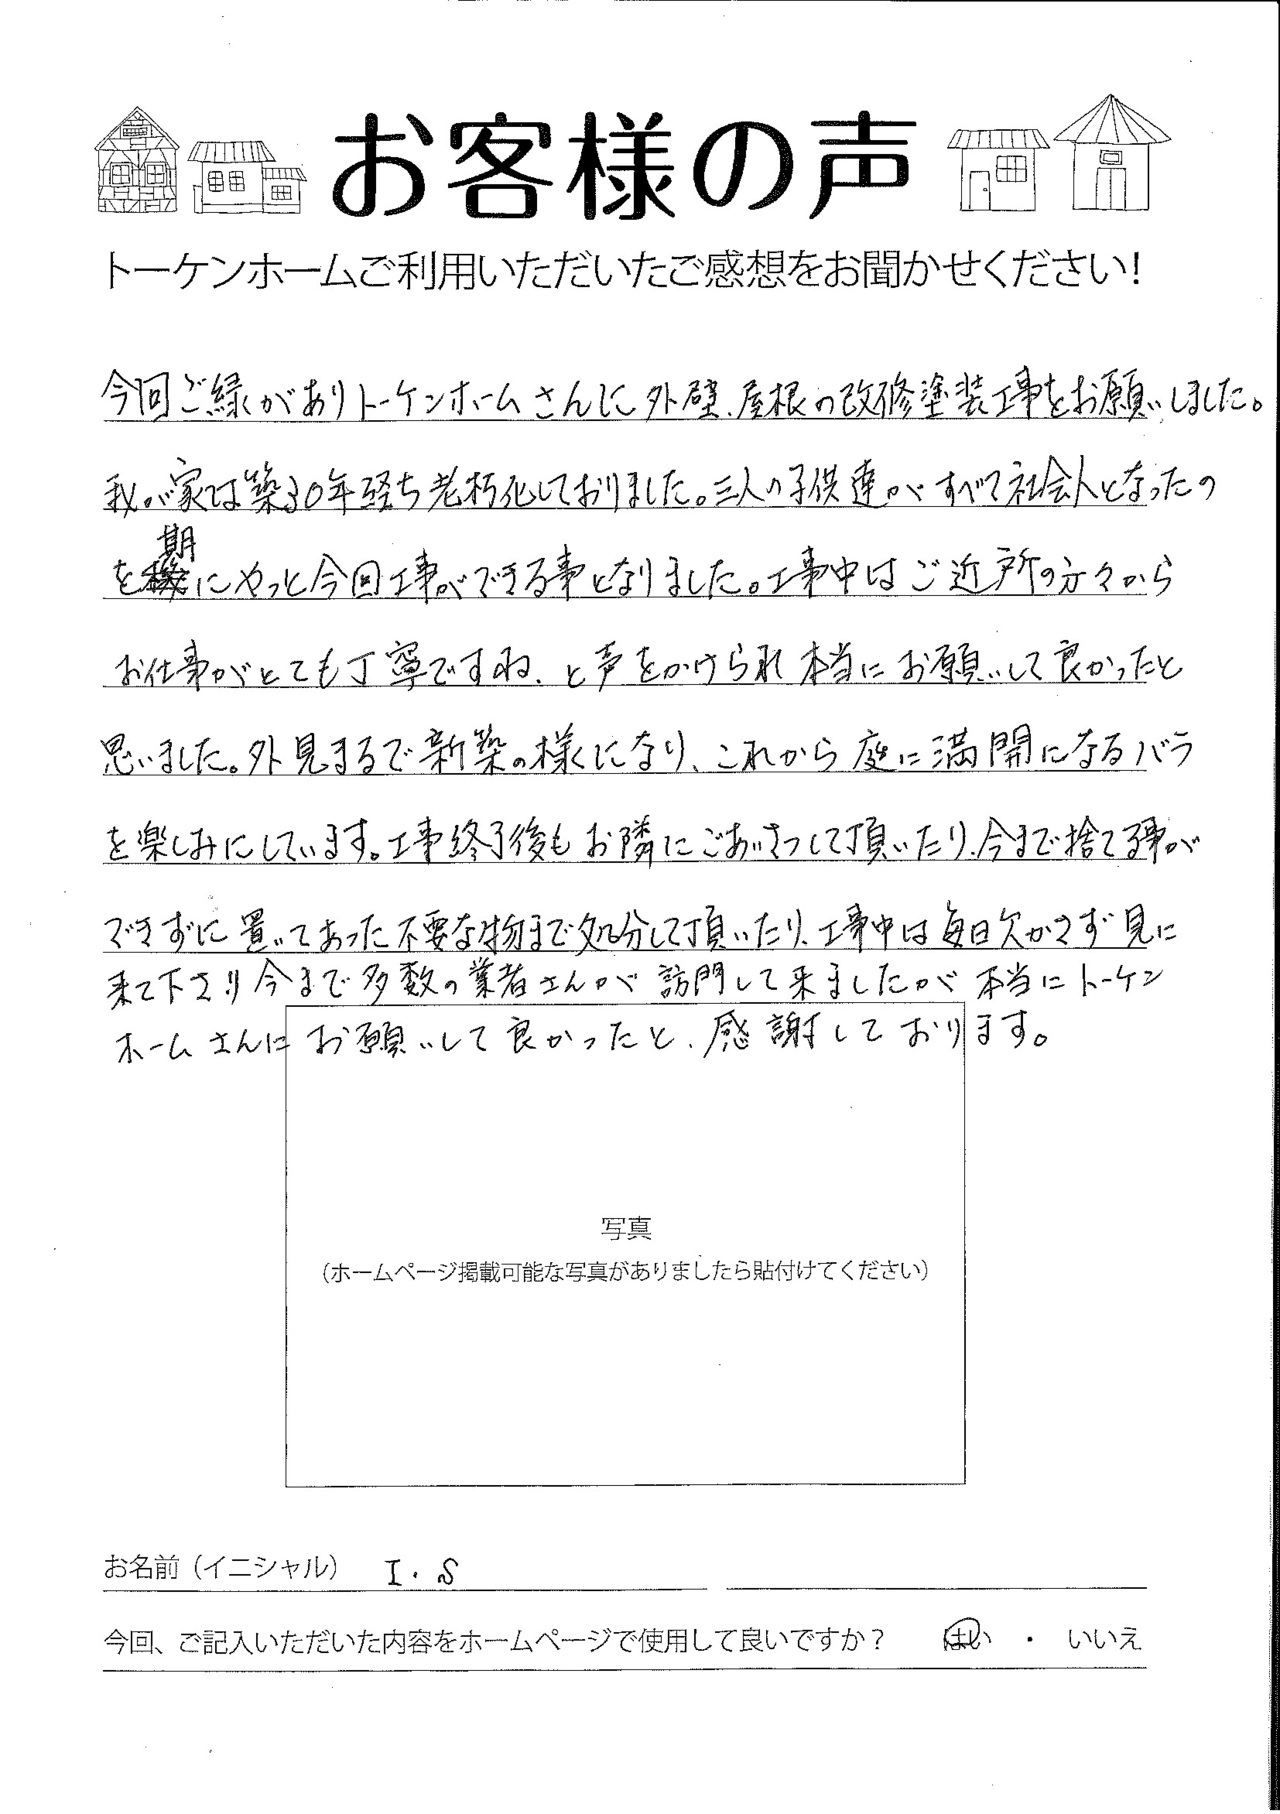 お客様の声
トーケンホームご利用いただいたご感想をお聞かせください！
今回ご縁がありトーケンホームさんに外壁、屋根の改修塗装工事をお願いしました。
我が家は築30年経ち老朽化しておりました。三人の子供達がすべて社会人となったの
を期にやっと今回工事ができる事となりました。工事中はご近所の方々から
お仕事がとても丁寧ですね、と声をかけられ本当にお願いして良かったと
思いました。外見まるで新築の様になり、これから庭に満開になるバラ
を楽しみにしています。工事終了後もお隣にごあいさつして頂いたり、今まで捨てる事が
できずに置いてあった不要な物まで処分して頂いたり、工事中は毎日欠かさず見に
来て下さり今まで多数の業者さんが訪問して来ましたが本当にトーケン
ホームさんにお願いして良かったと、感謝しております。
写真
（ホームページ掲載可能な写真がありましたら貼付けてください）
お名前（イニシャル） I.S
今回、ご記入いただいた内容をホームページで使用して良いですか？ はい ・ いいえ